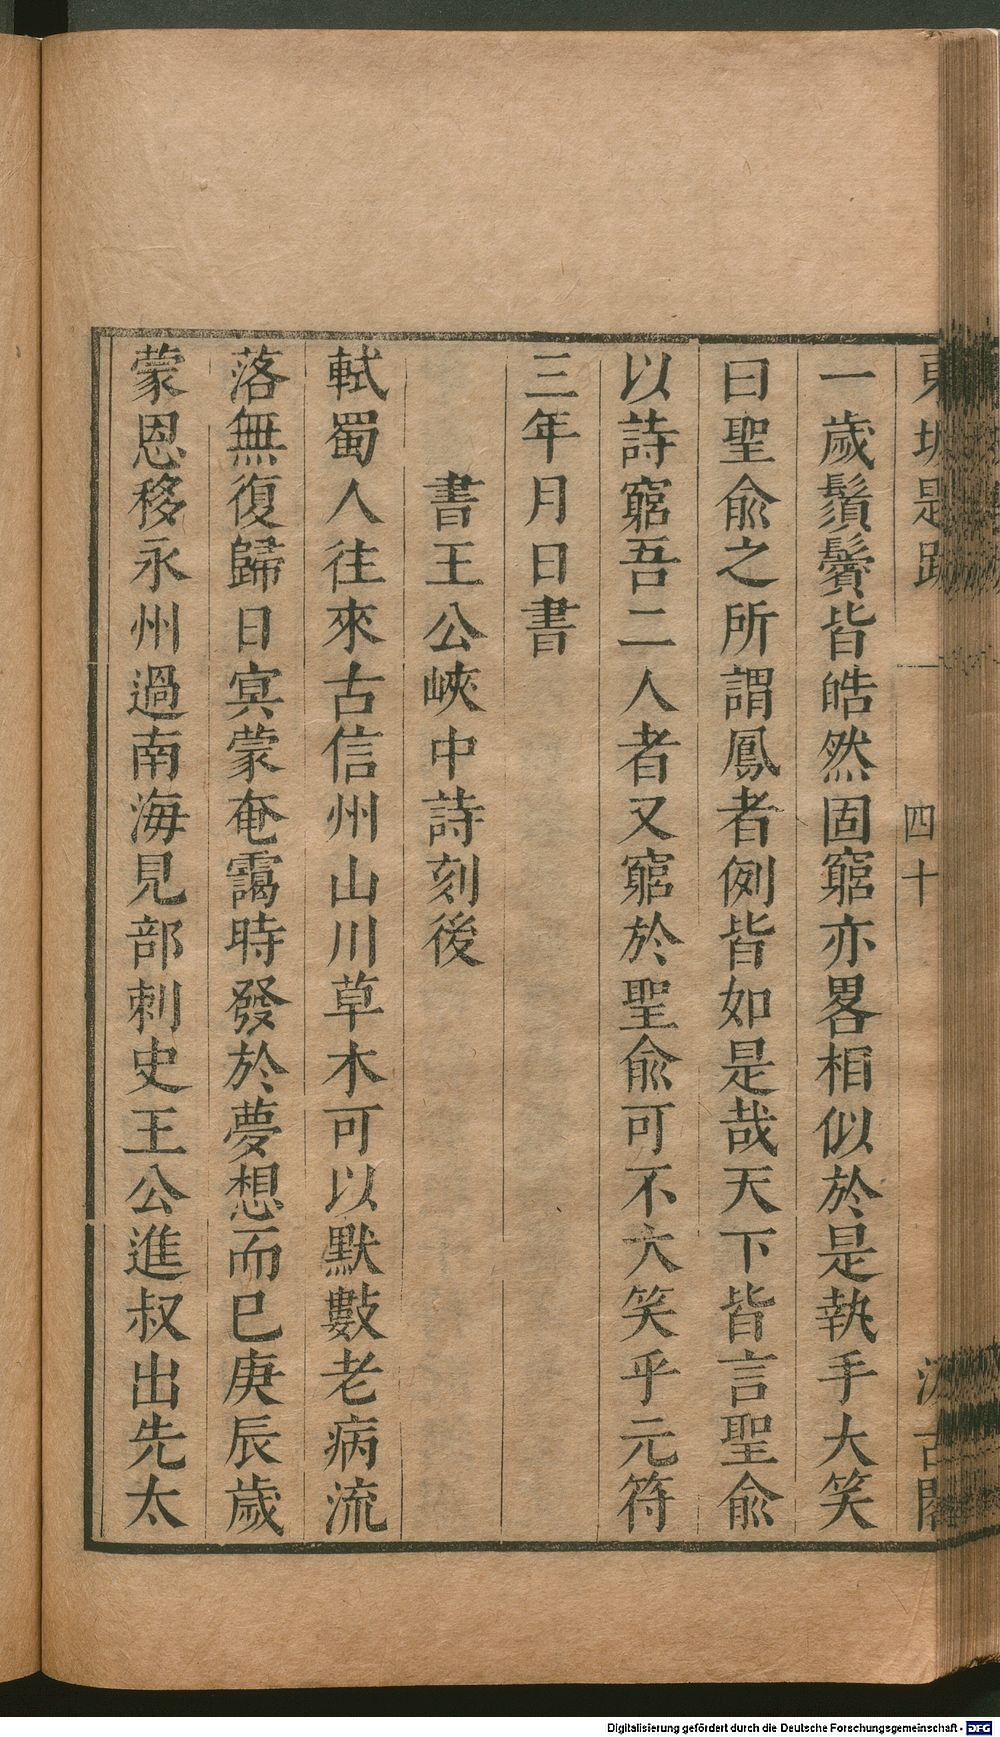 東坡題跋
四十
汲古閣
一歲鬚鬢皆皓然固窮亦畧相似於是執手大笑
曰聖俞之所謂鳳者例皆如是哉天下皆言聖俞
以詩窮吾二人者又窮於聖俞可不大笑乎元符
三年月日書
書王公峽中詩刻後
軾蜀人往來古信州山川草木可以默數老病流
落無復歸日㝠蒙奄靄時發於夢想而已庚辰歲
蒙恩移永州過南海見部刺史王公進叔出先太
Digitalisierung gefördert durch die Deutsche Forschungsgemeinschaft - DFG